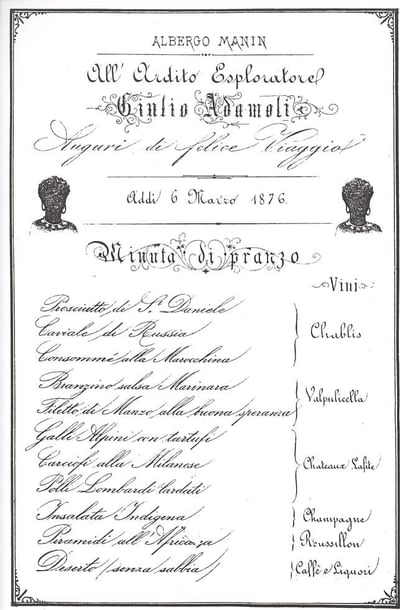 ALBERGO MANIN
All' Ardito Esploratore
Giulio Adamoli
Auguri di felice Viaggio
Addì 6 Marzo 1876.
Minuta di pranzo
Vini
Prosciutto di S. Daniele
Caviale di Russia
Consommé alla Marocchina
Chablis
Branzino salsa Marinara
Filetto di Manzo alla buona speranza
Valpulicella
Galli Alpini con tartufi
Carciofi alla Milanese
Polli Lombardi lardati
Chateaux Lafite
Insalata Indigena
Champagne
Piramidi all'Africana
Roussillon
Deserto (senza sabbia)
Caffè e Liquori